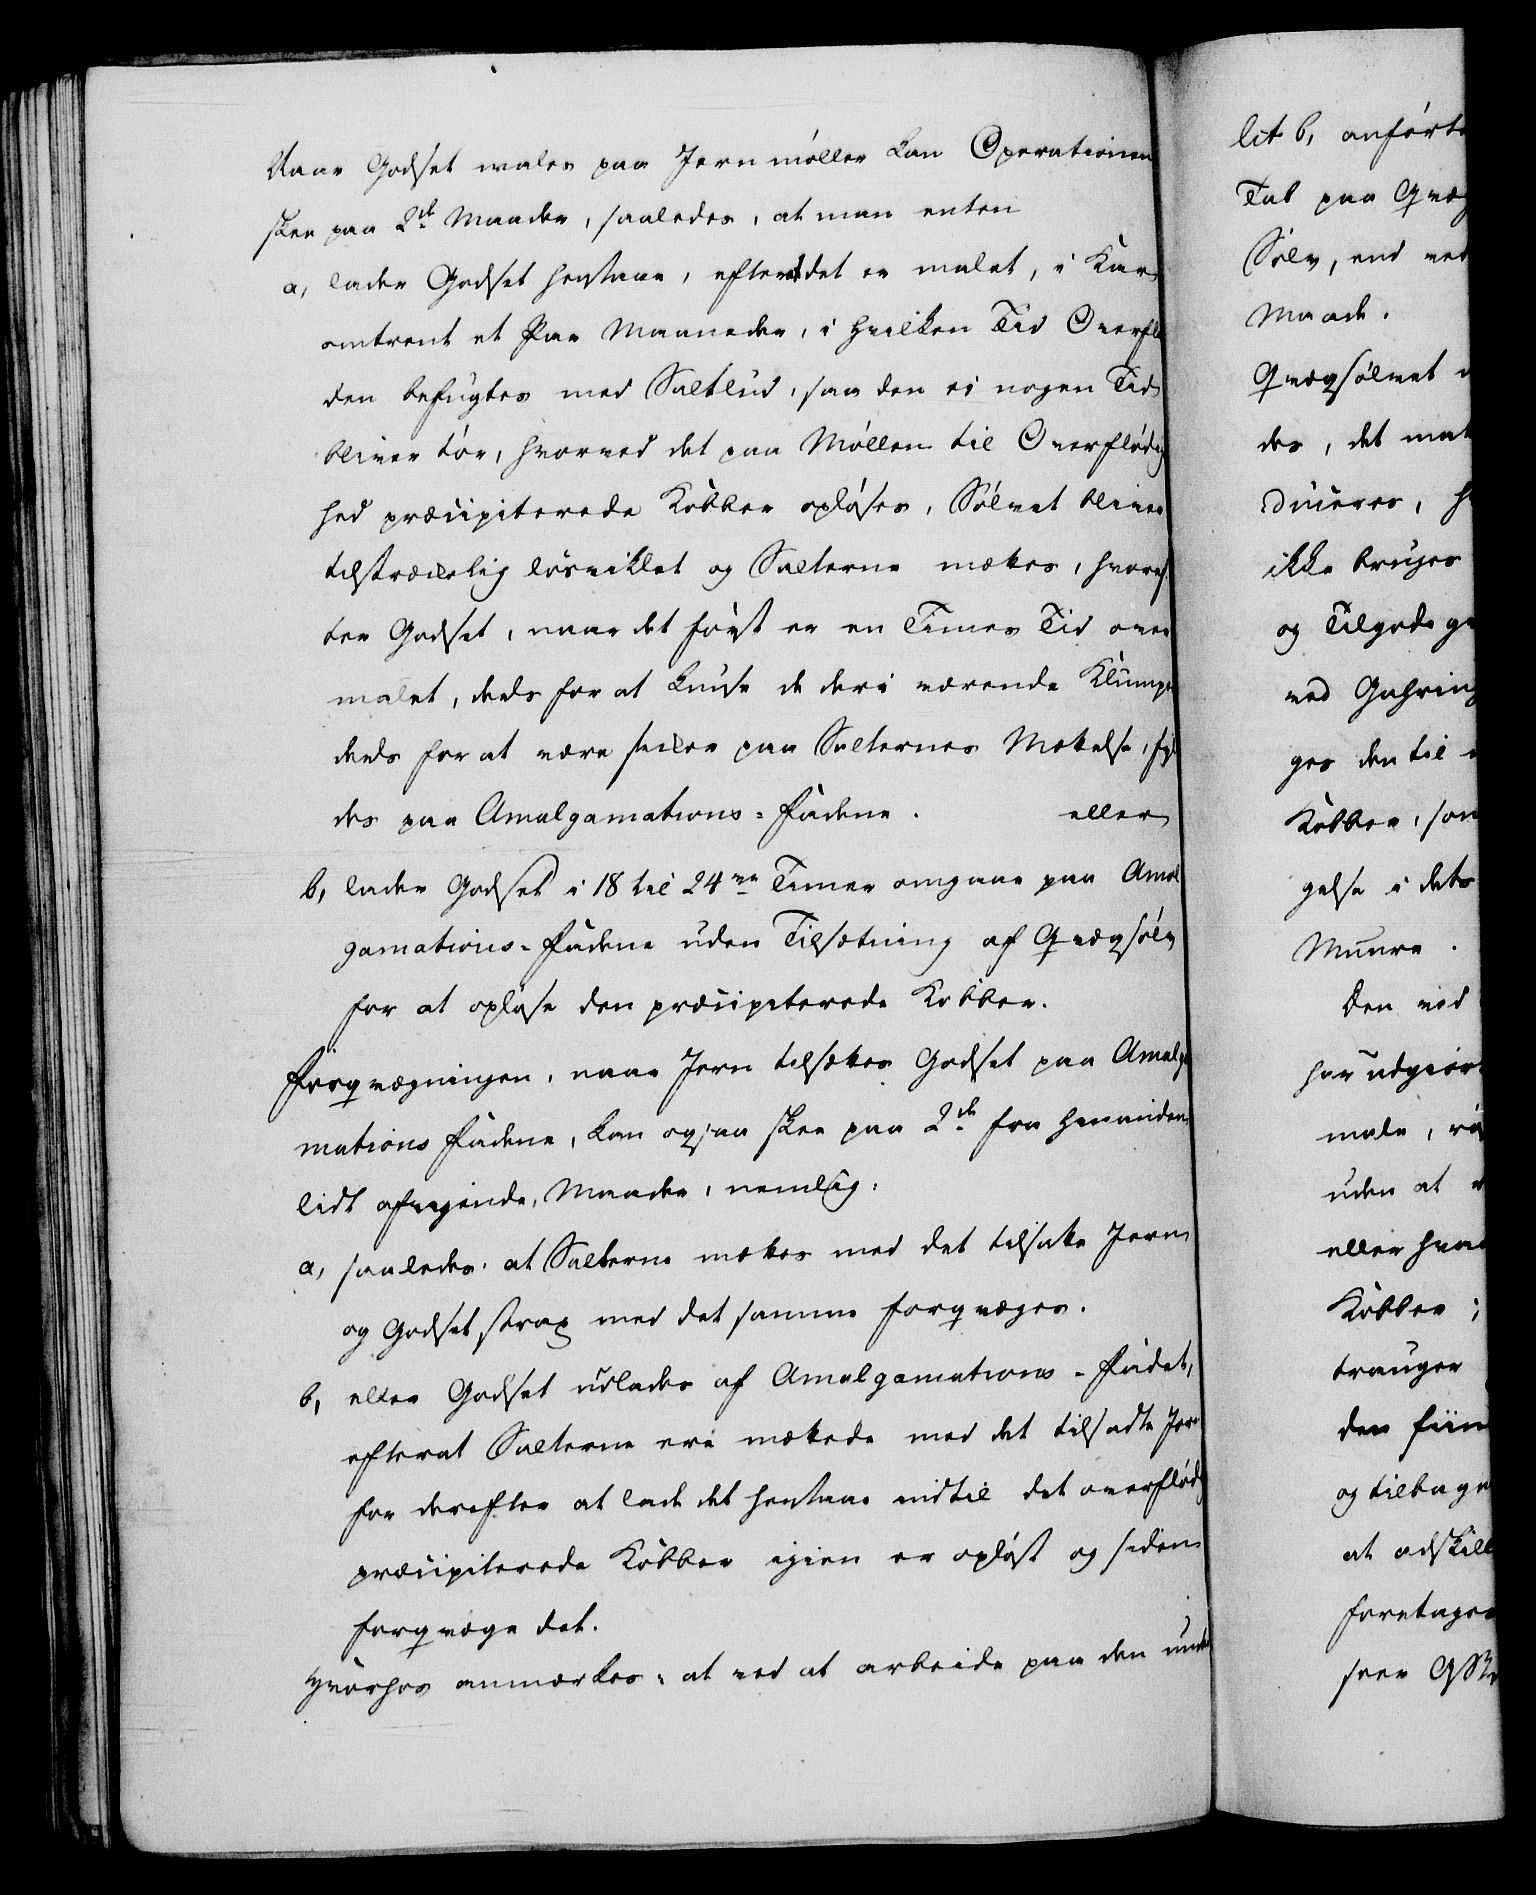 Naar Godset males paa Jernmøller kan Operationen
skee paa 2de Maader, saaledes, at man enten
a, lader Godset henstaae, efterat det er malet, i Kar
omtrent et Par Maaneder, i hvilken Tid Overfla
den befugtes med Saltlud, saa den ei nogen Tid
bliver tør, hvorved det paa Møllen til Overflødig
hed præcipiterede Kobber opløses, Sølvet bliver
tilstrækkelig løsviklet og Salterne mættes, hvoref
ter Godset, naar det først er en Times Tid over
malet, deels for at knuse de deri værende Klumpe
deels for at være sikker paa Salternes Mættelse, fyl
des paa Amalgamations-Fadene. eller
b, lader Godset i 18 til 24ve Timer omgaae paa Amal
gamations-Fadene uden Tilsætning af Qvægsølv
for at opløse den præcipiterede Kobber.
Forqvægningen, naar Jern tilsættes Godset paa Amalga
mations Fadene, kan ogsaa skee paa 2de fra hinanden
lidt afvigende, Maader, nemlig:
a, saaledes at Salterne mættes med det tilsatte Jern
og Godset strax med det samme forqvæges.
b, eller Godset udlades af Amalgamations-Fadet,
efterat Salterne ere mættede med det tilsadte Jern
for derefter at lade det henstaae indtil det overflødig
præcipiterede Kobber igien er opløst og siden
forqvæge det.
Hvorhos anmærkes, at ved at arbeide paa den unde
lit b, anførte
Tab paa Qvæg
Sølv, end ved
Maade.
Qvægsølvet
des, det mat
duceres,
ikke bruges
og Tilgode
ved
ges den til
Kobber, som
gelse i dets
Muure.
Den ved
har udgiort
male,
uden at
eller hvad
Kobber;
trænger
den fiin
og tilbage
at adskill
foretages
seer